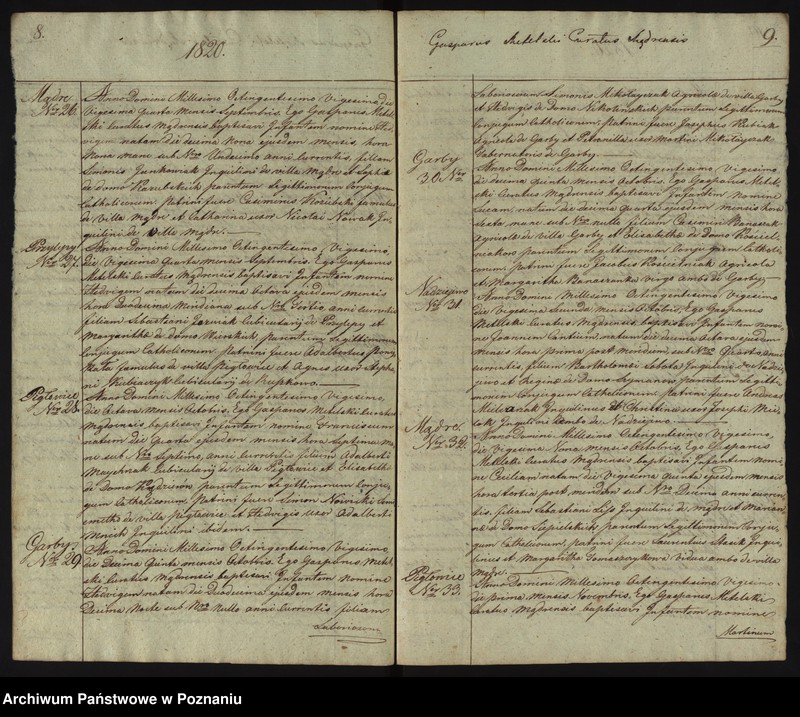 8.
1820.
Mądre
Nro 26.
Anno Domini Millesimo Octingentesimo Vigesimo, die
Vigesima quarta Mensis Septembris. Ego Gasparus
curatus Mądrensis baptisavi Infantem nomine
natam die decima Nona ejusdem mensis hora
Nona mane sub Nro Undecimo anni currentis, filiam
Simonis Jankowiak Inquilini de villa Mądre et Sophiæ
de domo parentum Legittimorum Conjugum
Catholicorum. Patrini fuere Casimirus famulus
de villa Mądre et Catharina uxor Nicolai Nowak In-
quilini de villa Mądre.
Nro 27.
Anno Domini Millesimo Octingentesimo, Vigesimo,
die Vigesima quarta Mensis Septembris. Ego Gasparus
curatus Mądrensis baptisavi Infantem nomine
Hedvigem natam die decima Octava ejusdem mensis
hora duodecima Meridiana sub Nro Tertio anni currentis
filiam Sebastiani cubicularij de et
Margarithæ de domo parentum Legittimorum
Conjugum Catholicorum. Patrini fuere Adalbertus
famulus de villa Pigłowice et Agnes uxor
cubicularij de
Pigłowice
Nro 28.
Anno Domini Millesimo Octingentesimo Vigesimo,
die Octava mensis Octobris. Ego Gasparus curatus
Mądrensis baptisavi Infantem nomine Franciscum
natum die Quarta ejusdem mensis hora Septima ma-
ne sub Nro Septimo, anni currentis filium Adalberti
cubicularij de villa Pigłowice et Elisabethæ
de Domo parentum Legittimorum Conju-
gum Catholicorum. Patrini fuere Simon Nowicki
de villa Pigłowice et Hedvigis uxor Adalberti
Inquilini ibidem.
Garby
Nro 29.
Anno Domini Millesimo Octingentesimo Vigesimo,
die Decima Quinta mensis Octobris. Ego Gasparus
curatus Mądrensis baptisavi Infantem nomine
Hedvigem natam die Duodecima ejusdem mensis hora
Decima Nocte sub Nro Nullo anni currentis filiam
Laboriosorum
Gasparus Curatus Mądrensis
9.
Laboriosorum Simonis Mikołayczak Agricolæ de villa Garby
et Hedvigis de Domo parentum Legittimorum
Conjugum Catholicorum. Patrini fuere Josephus Kubiak
Agricola de Garby et Petronilla uxor Martini Mikołayczak
Tabernatoris de Garby.
Garby
30 Nro
Anno Domini Millesimo Octingentesimo Vigesimo,
die decima Quinta mensis Octobris. Ego Gasparus
curatus Mądrensis baptisavi Infantem nomine
Lucam, natum die decima Quarta ejusdem mensis hora
Sexta mane sub Nro nullo filium Casimiri Banaszak
Agricolæ de villa Garby et Elisabethæ de Domo
parentum Legittimorum Conjugum Catholi-
corum. Patrini fuere Jacobus Agricola
et Margaritha virgo ambo de Garby.
Nadziejewo
Nro 31.
Anno Domini Millesimo Octingentesimo Vigesimo,
die Vigesima Secunda mensis Octobris. Ego Gasparus
curatus Mądrensis baptisavi Infantem nomi-
ne Joannem Cantium, natum die decima Octava ejusdem
mensis hora prima post meridiem, sub Nro Quarto, anni
currentis, filium Bartholomei Sobota Inquilini de Nadzie-
jewo et Reginæ de Domo parentum Legitti-
morum Conjugum Catholicorum. Patrini fuere Andreas
Inquilinus et Christina uxor Josephi
Inquilini ambo de Nadziejewo.
Mądre.
Nro 32.
Anno Domini Millesimo Octingentesimo Vigesimo,
die Vigesima Nona, mensis Octobris, Ego Gasparus
curatus Mądrensis, baptisavi Infantem nomi-
ne Ceciliam natam die Vigesima Quinta ejusdem mensis
hora tertia post meridiem sub Nro Decimo anni curren-
tis, filiam Sebastiani Lis Inquilini de Mądre et Marian-
næ de Domo parentum Legittimorum Conju-
gum Catholicorum. Patrini fuere Laurentius Inqui-
linus et Margaritha Tomaszewska Vidua ambo de villa
Mądre.
Pigłowice
Nro 33.
Anno Domini Millesimo Octingentesimo Vigesimo
die prima mensis Novembris. Ego Gasparus
curatus Mądrensis baptisavi Infantem nomine
Martinum
Archiwum Państwowe w Poznaniu